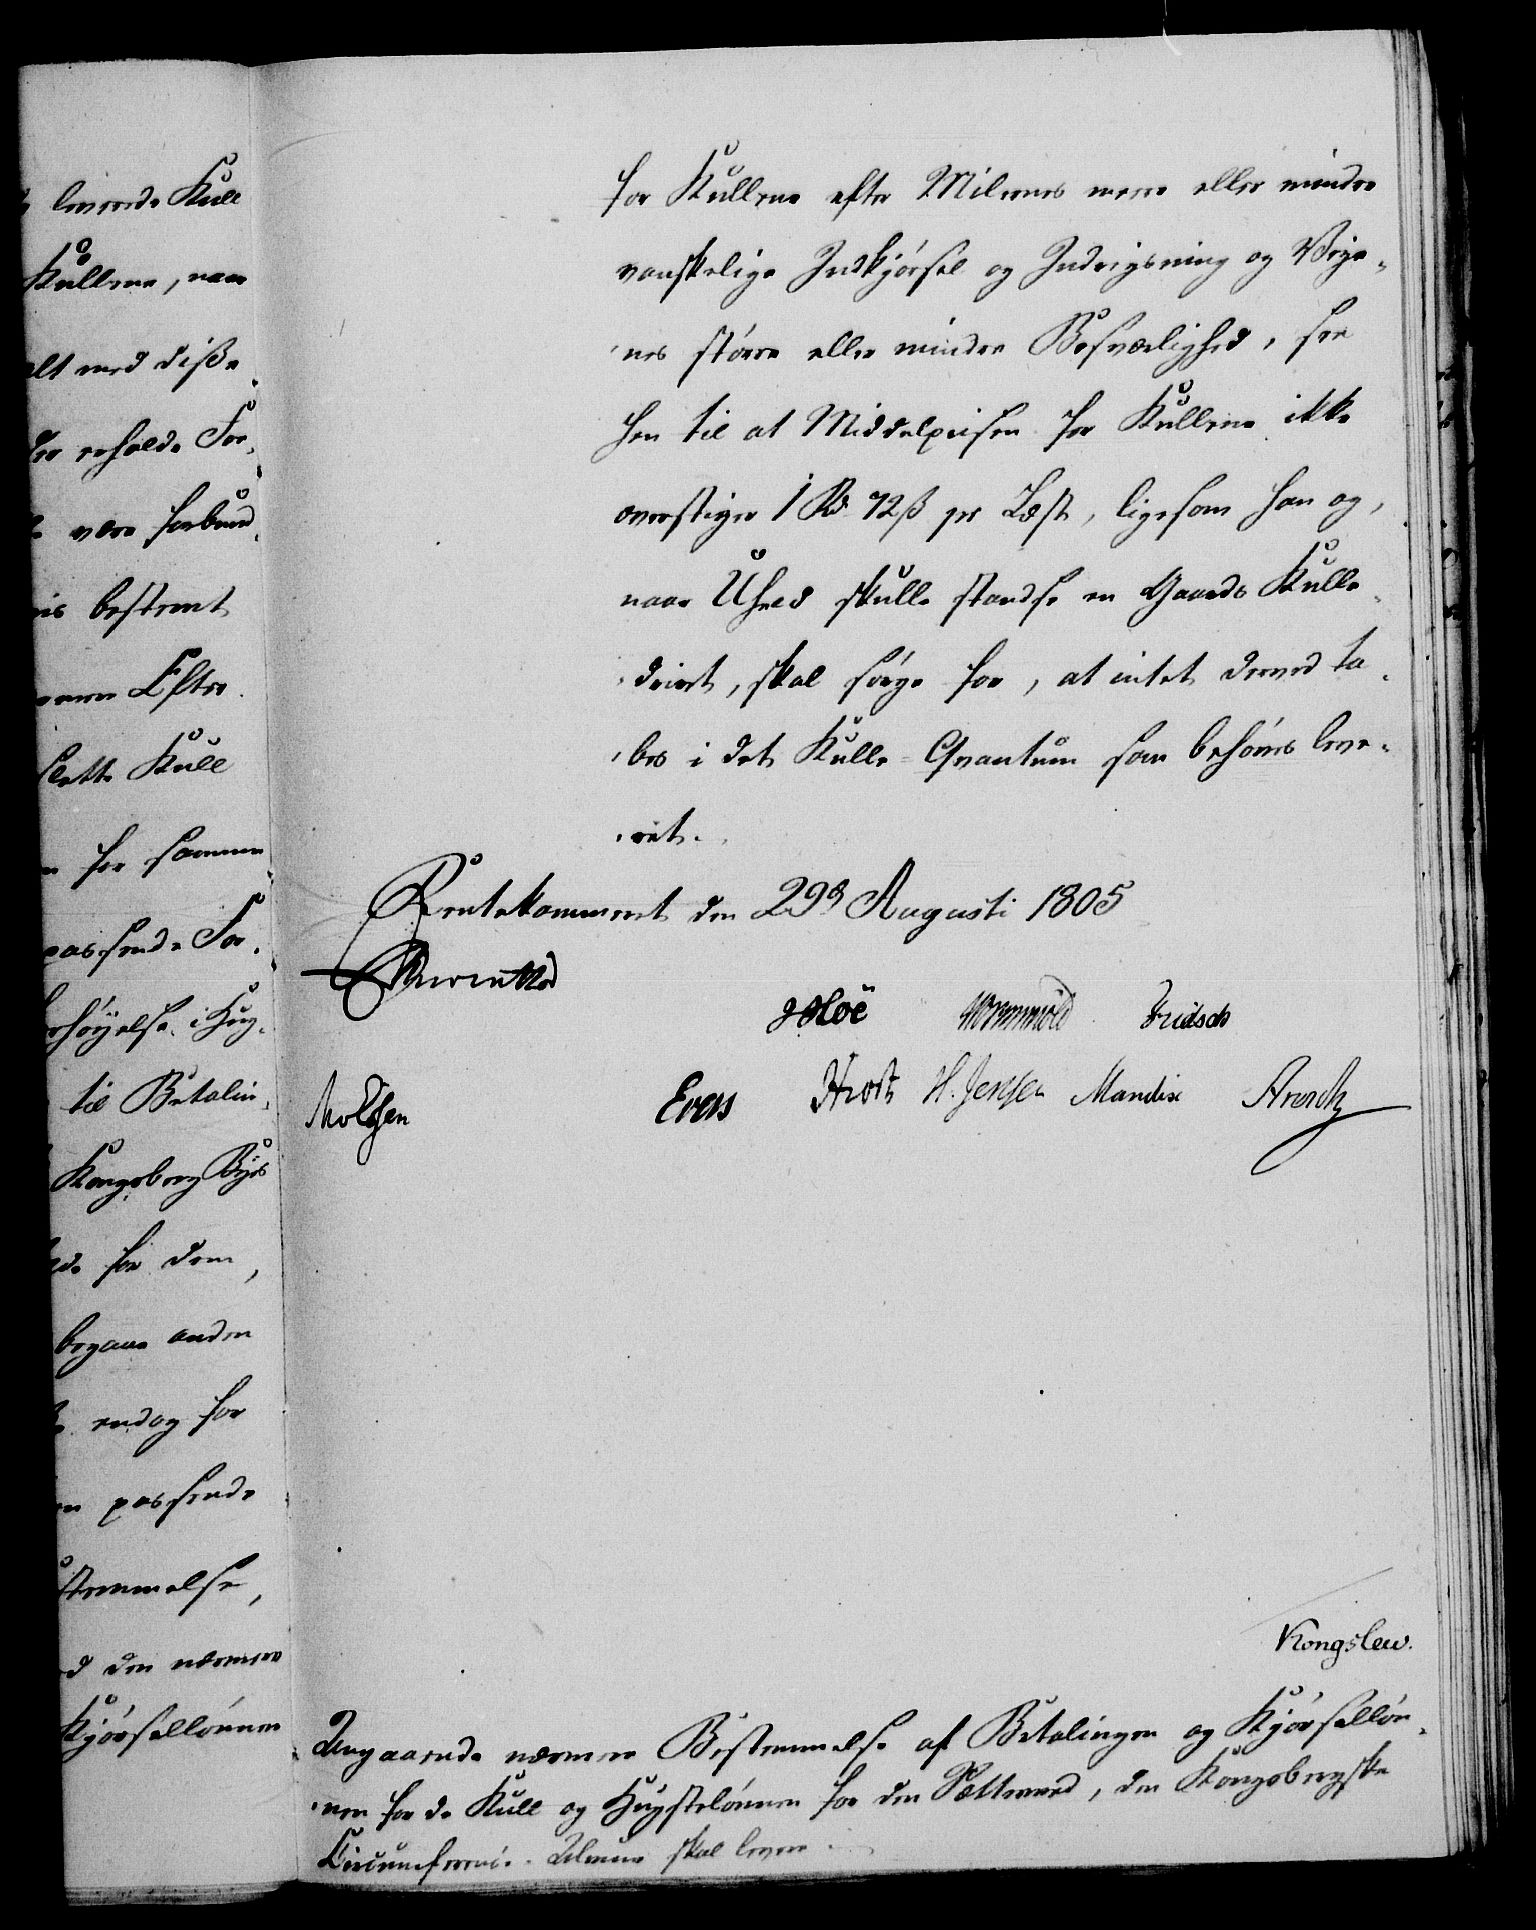 leverede Kull
Kullene, naar
alt med disse
erholde For-
være forbund-
bestemt
Efter
slette Kull
for sammen
passende For-
forhøyelse i Hug-
til Betalin-
Kongsberg Byes
for dem,
begaae anden
endog for
passende
stemmelse,
den nærmere
Kjørsellønnen
for Kullene efter Milernes mere eller mindre
vanskelige Indkjørsel og Indviisning og Veye-
nes større eller mindre Besværlighed, see
hen til at Middelprisen for Kullene ikke
overstiger 1 Rd 72 ß pr Læst, ligesom han og,
naar Uheld skulle standse en Gaards Kulle-
drivt, skal sørge for, at intet derved ta-
bes i det Kulle-Qvantum som behøves leve-
ret.
Rentekammeret den 29de Augusti 1805
Reventlod
Hoë Wormskiold Fridsch
Moltzen Evers Hrost H. Jensen Mandix Arentz
Kongslew.
Angaaende nærmere Bestemmelse af Betalingen og Kjørselløn-
nen for de Kull og Hugstelønnen for den Sætteved, den Kongsbergske
Circumferenz-Almue skal levere.